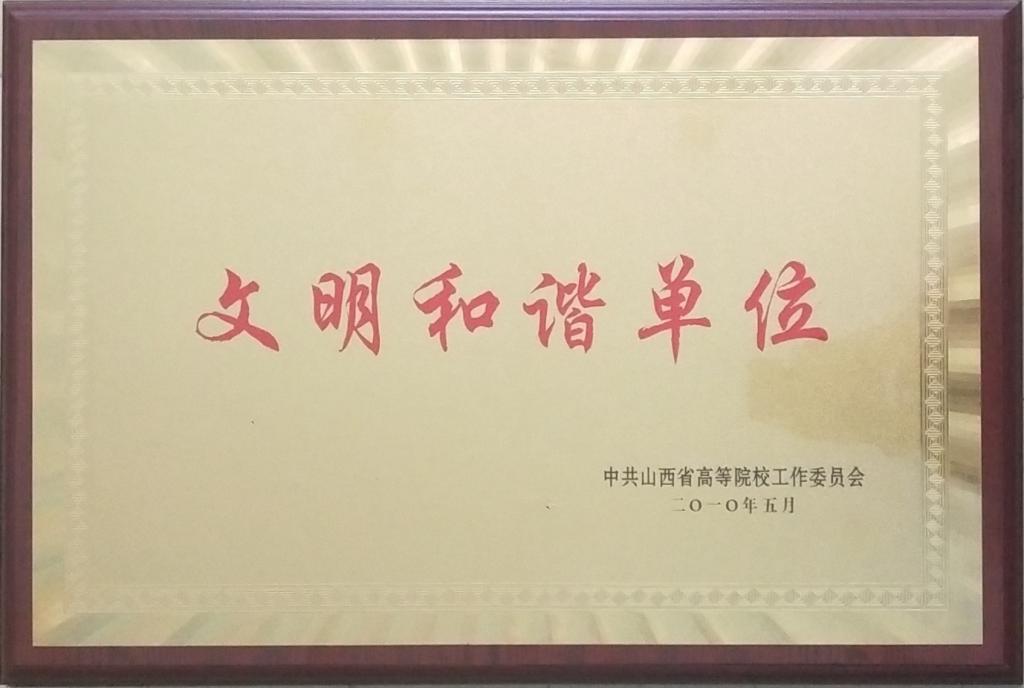 文明和谐单位
中共山西省高等院校工作委员会
二〇一〇年五月